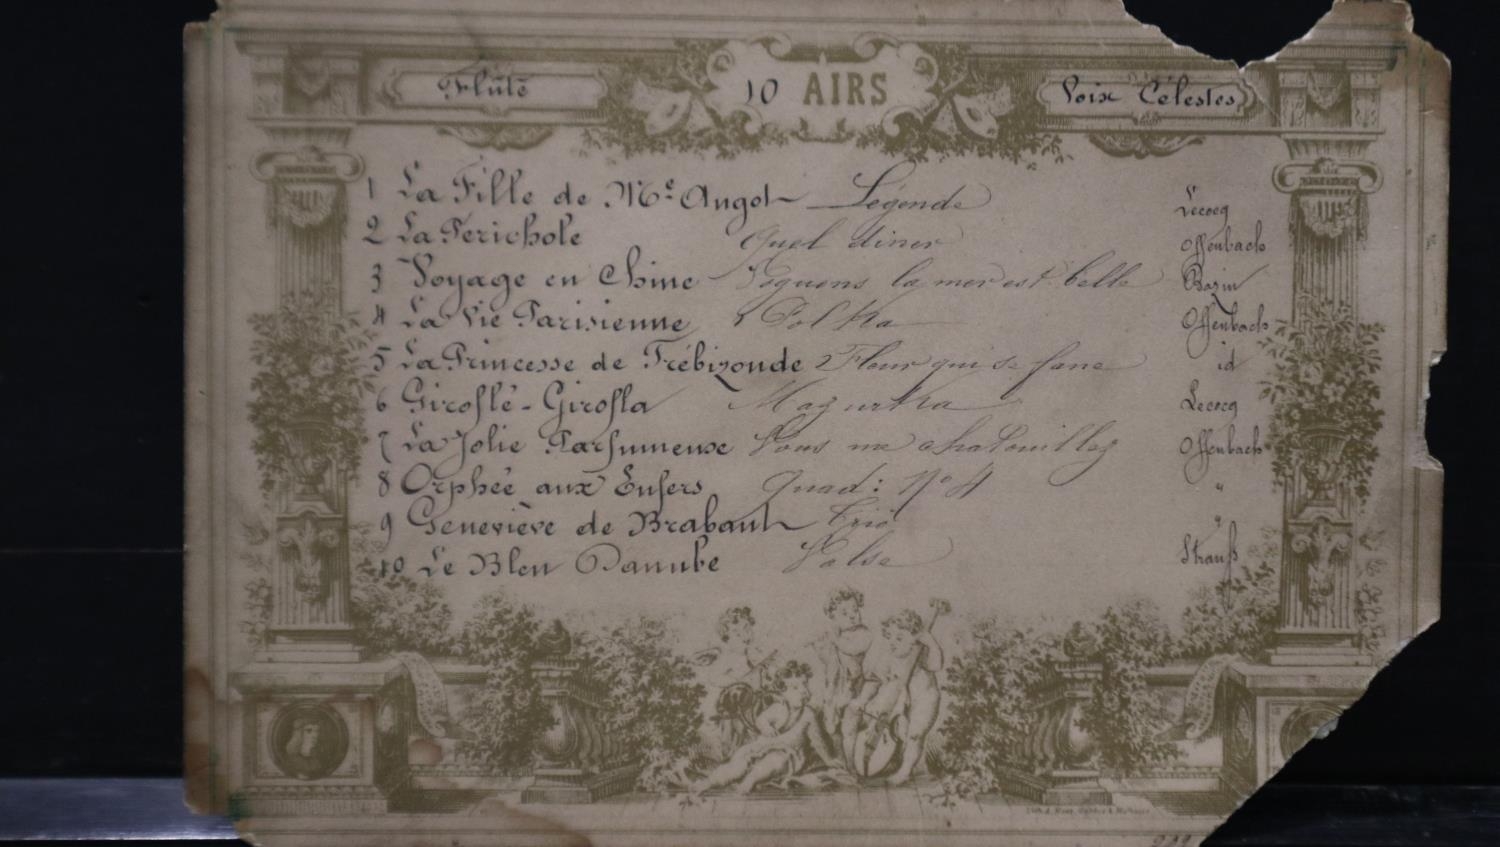 Flûte
10 AIRS
Voix Célestes
1 La Fille de Me. Angot Légende Lecocq
2 La Perichole Quel diner Offenbach
3 Voyage en Chine Voguons la mer est belle Bazin
4 La Vie Parisienne Polka Offenbach
5 La Princesse de Trébizonde Fleur qui se fane id
6 Giroflé-Girofla Mazurka Lecocq
7 La Jolie Parfumeuse Vous me chatouillez Offenbach
8 Orphée aux Enfers Quad: No 4 "
9 Geneviève de Brabant Trio "
10 Le Bleu Danube Valse Strauß